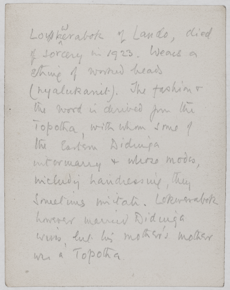 of Lando, died
of sorcery in 1923. Wears a
string of wound beads
(nyalukanet). The fashion &
the word is derived from the
Topotha, with whom some of
the Eastern Didinga
intermarry & whose modes,
including hairdressing, they
sometimes imitate.
however married Didinga
wives, but his mother's mother
was a Topotha